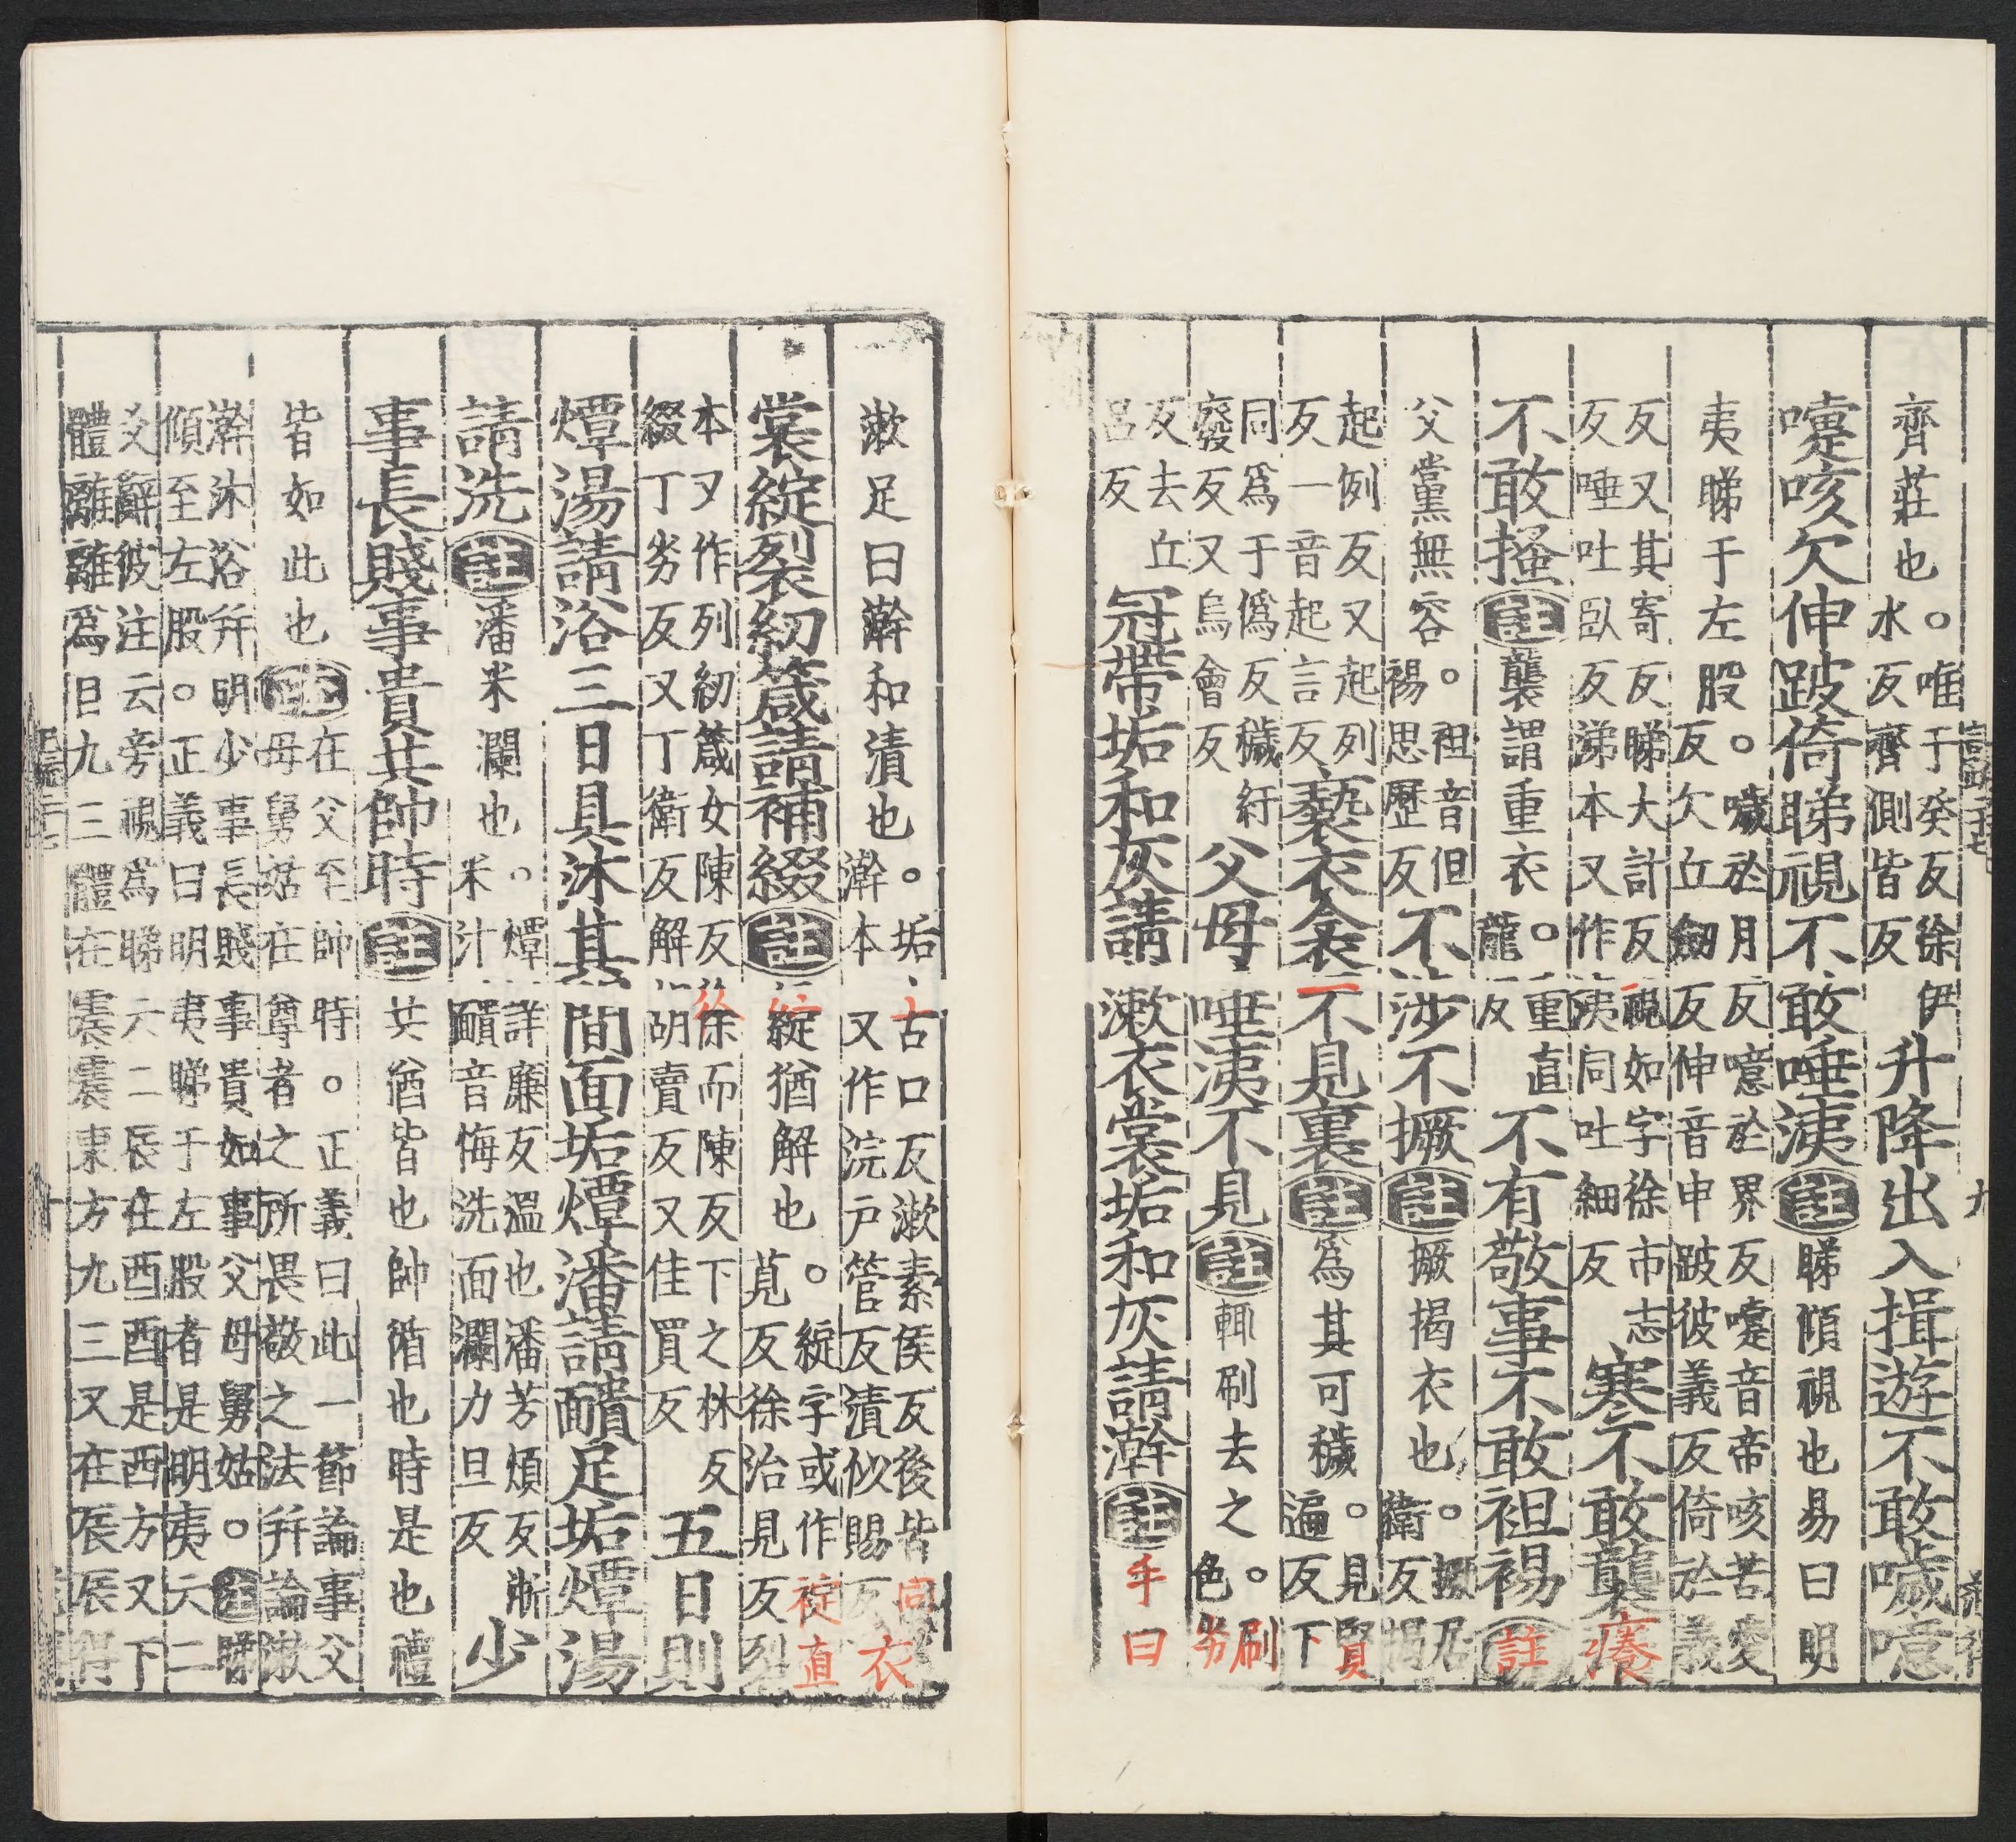 齊莊也。
唯于癸反徐伊
水反齊側皆反
升降出入揖遊不敢噦噫
嚏咳欠伸跛倚睇視不敢唾洟註睇傾視也易曰明
夷睇于左股。
噦於月反噫於界反嚏音帝咳苦愛
反欠丘劒反伸音申跛彼義反倚於義
反又其寄反睇大計反視如字徐市志
反唾吐臥反洟本又作涕同吐細反
寒不敢襲癢
不敢搔註襲謂重衣。
重直
龍反
不有敬事不敢袒裼註
父黨無容。
袒音但
裼思歷反
不涉不撅註撅揭衣也。
撅居
衛反揭
起例反又起列
反一音起言反
褻衣衾不見裏註爲其可穢。
見賢
遍反下
同爲于僞反穢紆
廢反又烏會反
父母唾洟不見註輒刷去之。
刷
色劣
反去丘
呂反
冠帶垢和灰請漱衣裳垢和灰請澣註手曰
漱足曰澣和漬也。
垢古口反漱素侯反後皆同
澣本又作浣戸管反漬似賜反
衣
裳綻裂紉箴請補綴註綻猶解也。
綻字或作䘺直
莧反徐治見反裂
本又作列紉箴女陳反徐而陳反下之林反
綴丁劣反又丁衛反解胡賣反又佳買反
五日則
燂湯請浴三日具沐其間面垢燂潘請靧足垢燂湯
請洗註潘米瀾也。
燂詳廉反溫也潘芳煩反淅
米汁靧音悔洗面瀾力旦反
少
事長賤事貴共帥時註共猶皆也帥循也時是也禮
皆如此也
在父至帥時。正義曰此一節論事父
母舅姑在尊者之所畏敬之法幷論漱
澣沐浴幷明少事長賤事貴如事父母舅姑。註睇
傾至左股。正義曰明夷睇于左股者是明夷六二
爻辭彼注云旁視爲睇六二辰在酉酉是西方又下
體離離爲目九三體在震震東方九三又在辰辰得